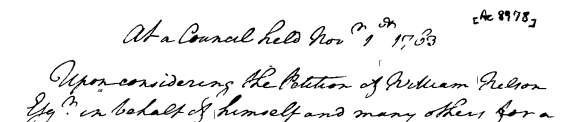 [Ac 8978]
At a Council held Novr 1st 1763
Upon considering the Petition of William Nelson
Esqr. in behalf of himself and many others for a